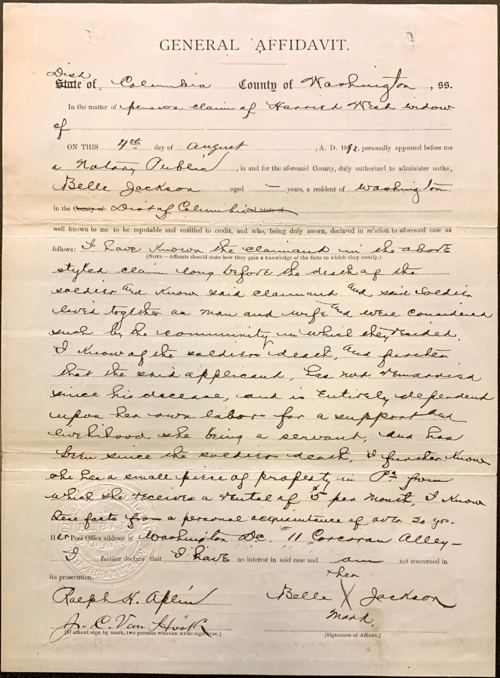 GENERAL AFFIDAVIT.
Dist
State of Columbia County of Washington, ss.
In the matter of pension claim of Harriet West widow
of
ON THIS 4th day of August, A. D. 1892, personally appeared before me
a Notary Public, in and for the aforesaid County, duly authorized to administer oaths,
Belle Jackson aged — years, a resident of Washington
in the County of Dist of Columbia State of
well known to me to be reputable and entitled to credit, and who, being duly sworn, declared in relation to aforesaid case as
follows: I have known the claimant in the above
(NOTE.—Affiants should state how they gain a knowledge of the facts to which they testify.)
styled claim long before the death of the
soldier and know said claimant and said soldier
lived together as man and wife and were considered
such by the community in which they resided.
I know of the soldiers death, and further
that the said applicant, has not remarried
since his decease, and is entirely dependent
upon her own labor for a support and
livelihood she being a servant, and has
been since the soldiers death, I further know
she has a small piece of property in Pa from
which she receives a rental of $5 per month, I know
these facts from a personal acquaintance of over 20 yrs.
Her Post Office address is Washington DC. 11 Corcoran Alley—
I further declare that I have no interest in said case and am not concerned in
its prosecution.
her
Ralph H. Aplin Belle X Jackson
mark.
Jr. C. Van Hook
[If affiant sign by mark, two persons who can write sign here.] [Signature of Affiant.]